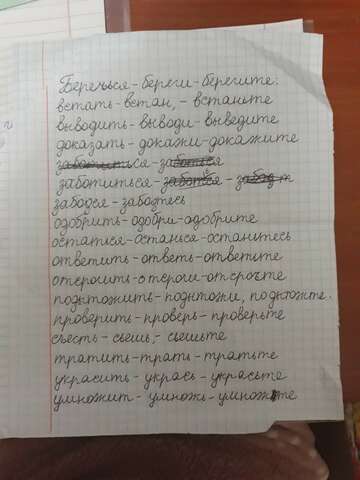 Беречься - береги - берегите.
встать - встан, - встаньте
выводить - выводи - выведите
доказать - докажи - докажите
заботиться - заботься
заботиться - - 
забодся - заботесь
одобрить - одобри - одобрите
остаться - останься - останьтесь
ответить - ответь - ответите
отсрочить - отсрочьте
подытожить - подытожи, подытожте.
проверить - проверь - проверьте
съесть - съешь, - съешьте
тратить - трать - тратьте
украсить - укрась - украсьте
умножит - умножь - умножте